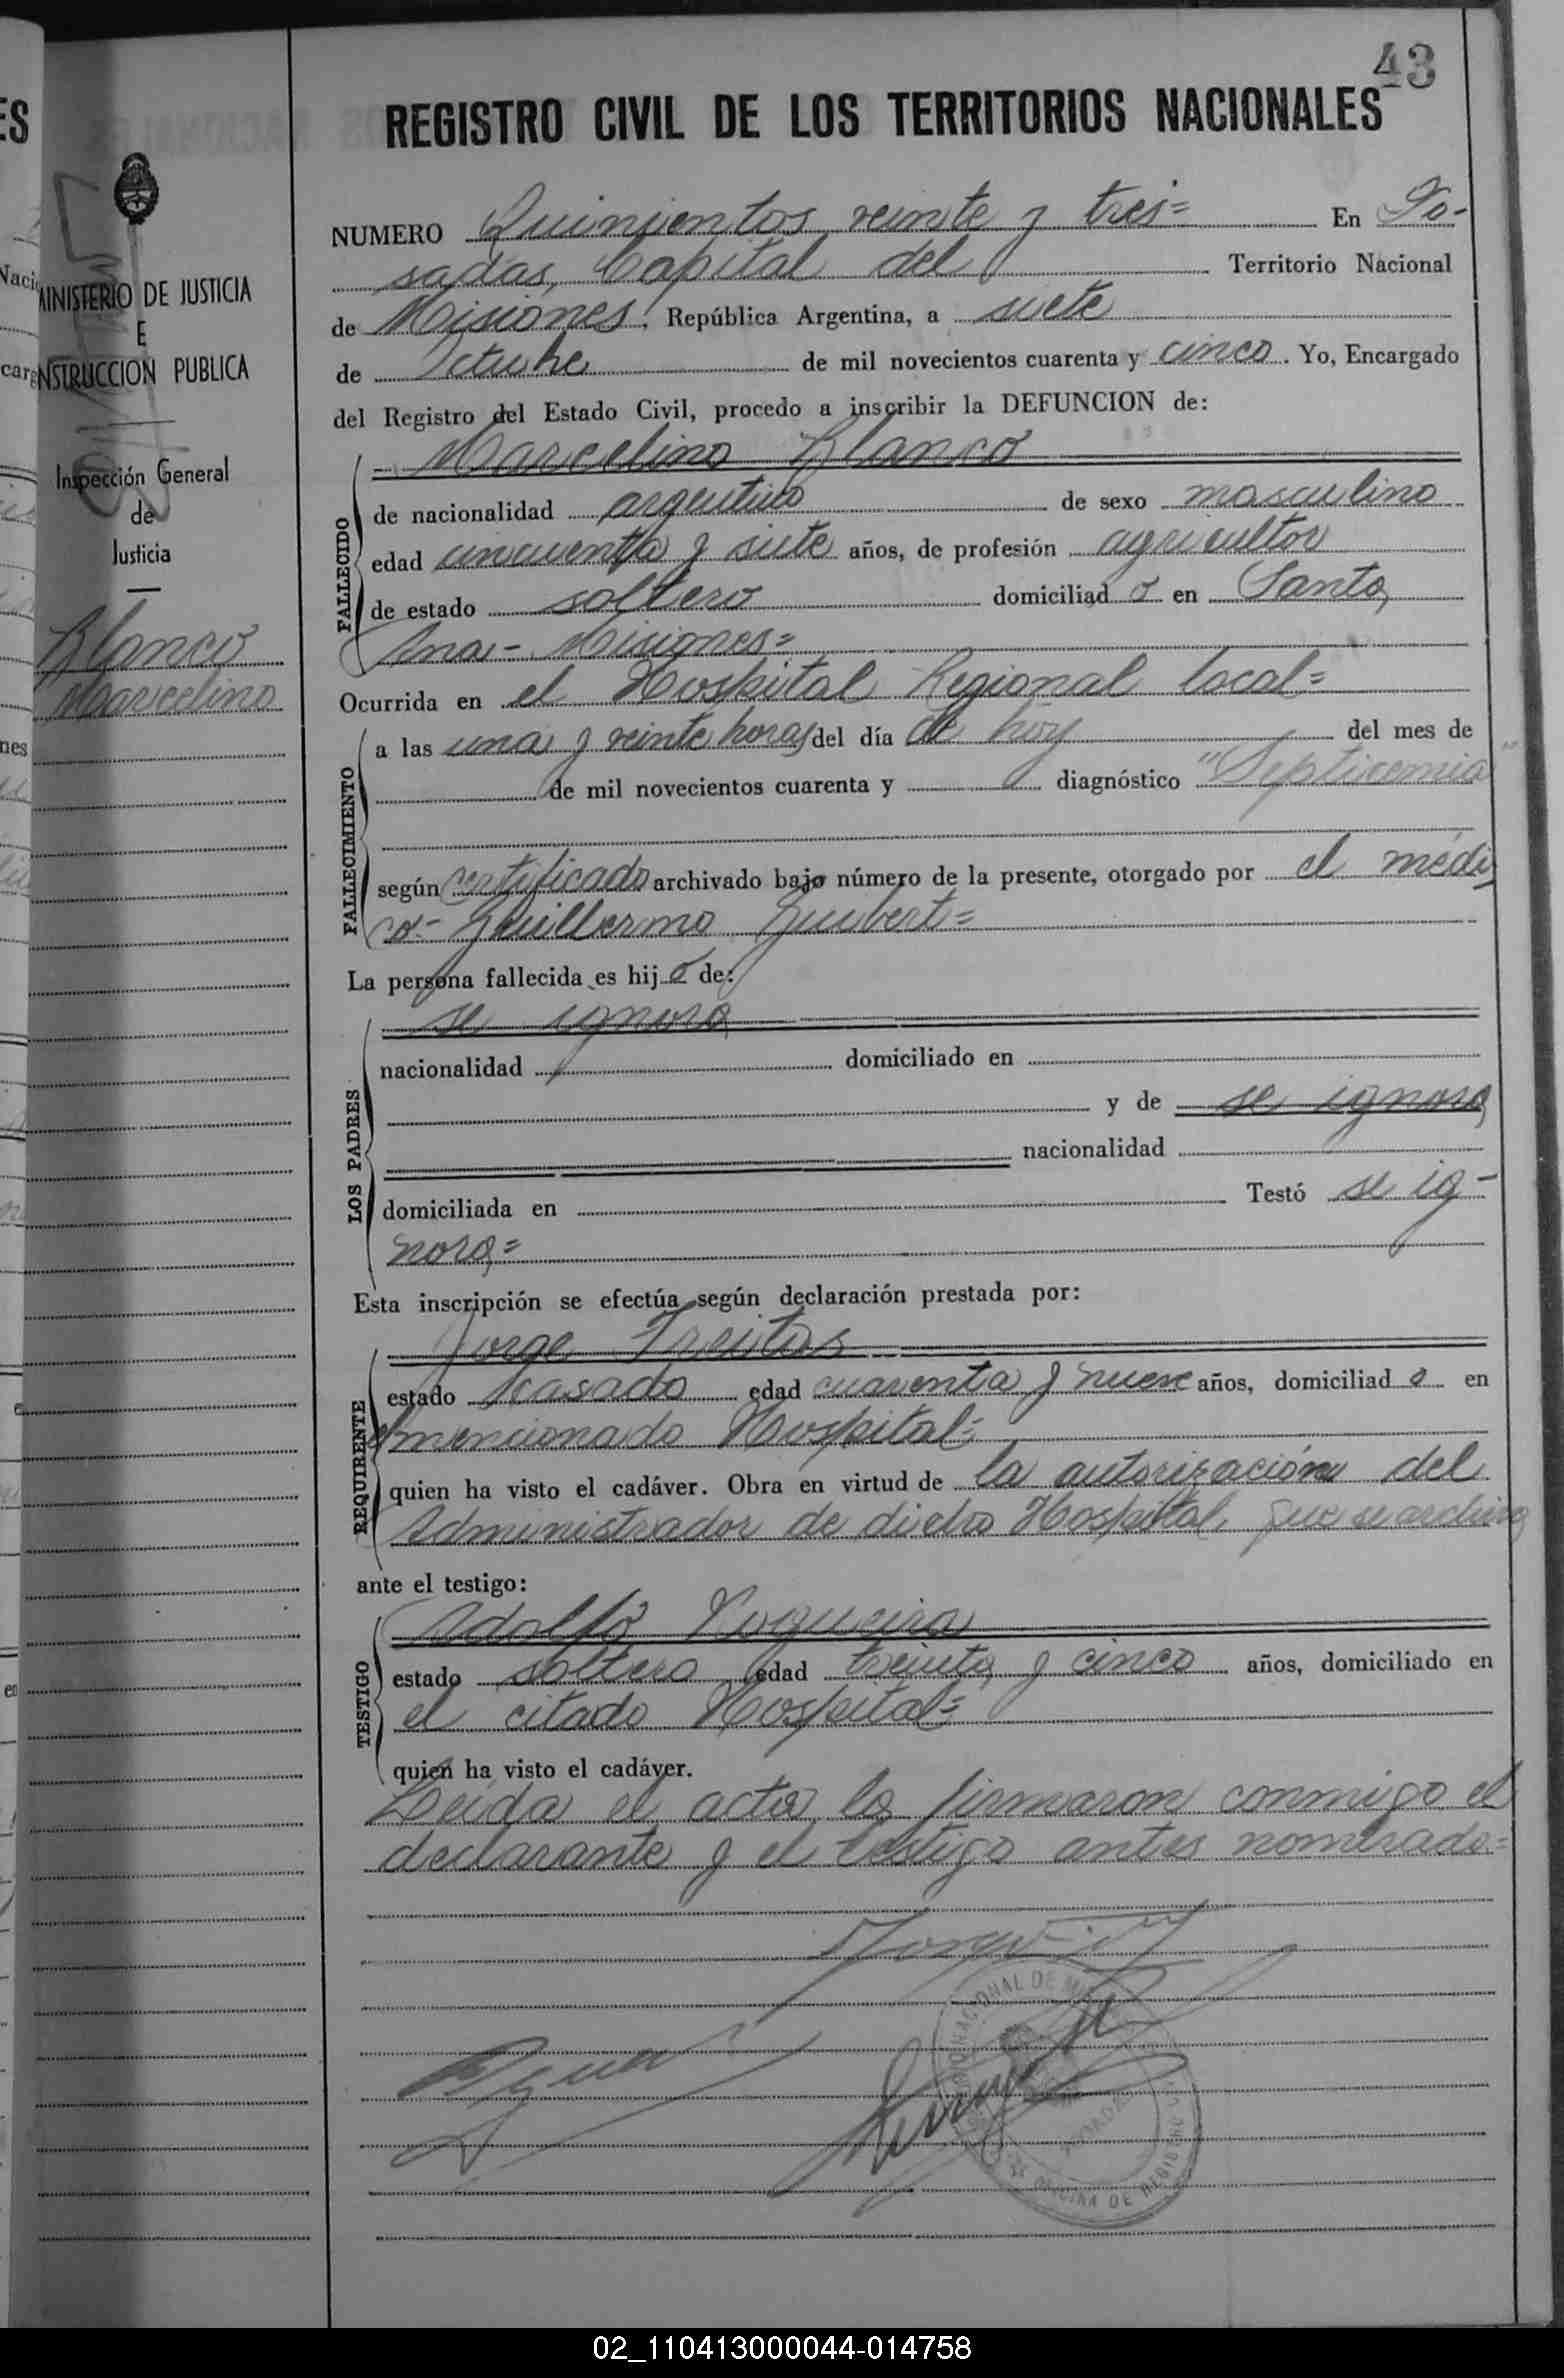 43
REGISTRO CIVIL DE LOS TERRITORIOS NACIONALES
MINISTERIO DE JUSTICIA
E
INSTRUCCION PUBLICA
Inspección General
de
Justicia
Blanco
Marcelino
NUMERO Quinientos veinte y tres= En Po-
sadas, Capital del Territorio Nacional
de Misiones, República Argentina, a siete
de Octubre de mil novecientos cuarenta y cinco. Yo, Encargado
del Registro del Estado Civil, procedo a inscribir la DEFUNCION de:
Marcelino Blanco
FALLECIDO
de nacionalidad argentino de sexo masculino
edad cincuenta y siete años, de profesión agricultor
de estado soltero domiciliado en Santa
Ana - Misiones=
Ocurrida en el Hospital Regional local=
FALLECIMIENTO
a las una y veinte horas del día de hoy del mes de
de mil novecientos cuarenta y diagnóstico "Septicemia"
según certificado archivado bajo número de la presente, otorgado por el médi
co- Guillermo
La persona fallecida es hijo de:
LOS PADRES
se ignora
nacionalidad domiciliado en
y de se ignora
nacionalidad
domiciliada en Testó se ig-
nora=
Esta inscripción se efectúa según declaración prestada por:
REQUIRENTE
Jorge Freitas
estado casado edad cuarenta y nueve años, domiciliado en
el mencionado Hospital=
quien ha visto el cadáver. Obra en virtud de la autorización del
Administrador de dicho Hospital, que se archiva
ante el testigo:
TESTIGO
Adolfo Nogueira
estado soltero edad treinta y cinco años, domiciliado en
el citado Hospital=
quien ha visto el cadáver.
Leída el acta, la firmaron conmigo el
declarante y el testigo antes nombrado=
02_110413000044-014758